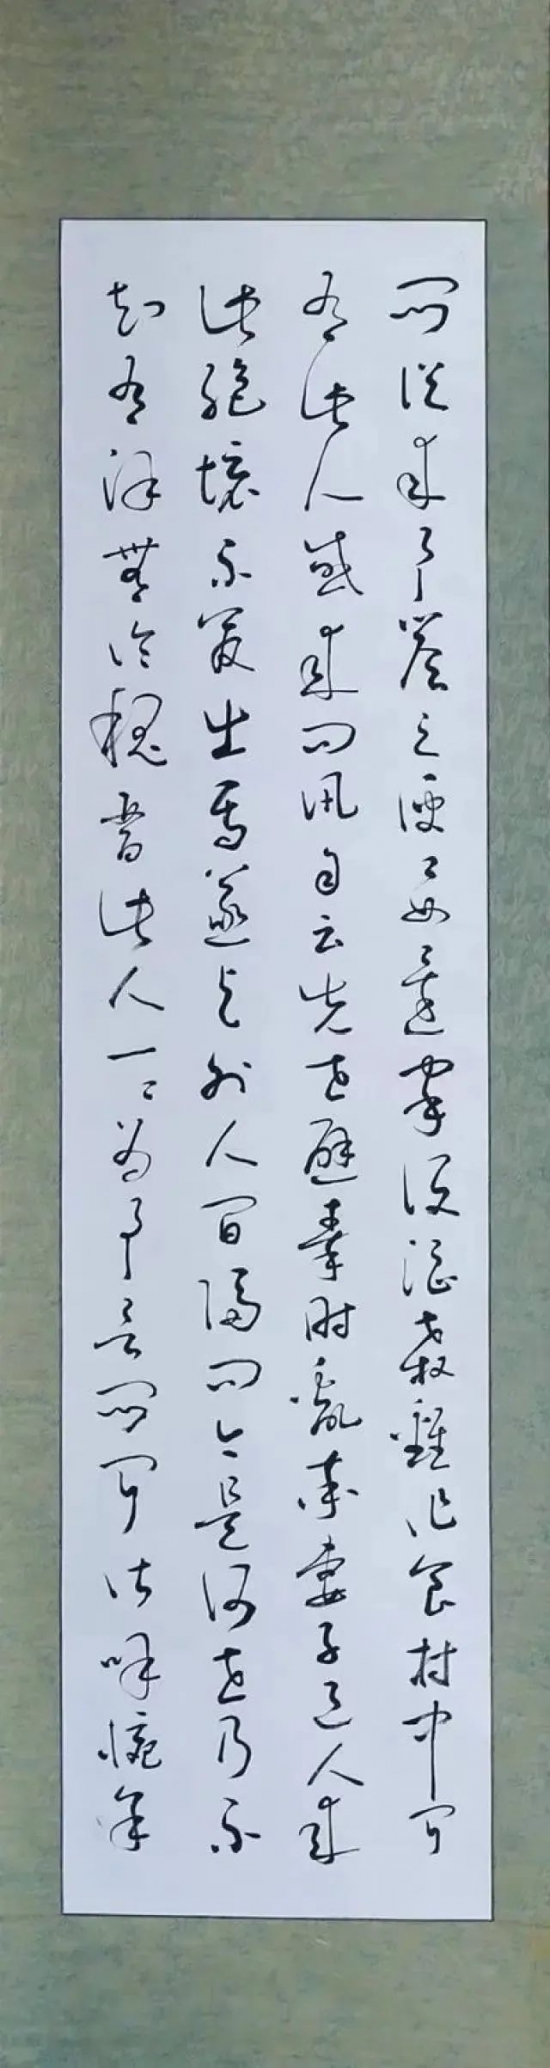 所從來具答之便要還家設酒殺雞作食村中聞
有此人咸來問訊自云先世避秦時亂率妻子邑人來
此絕境不復出焉遂與外人間隔問今是何世乃不
知有漢無論魏晉此人一一為具言所聞皆嘆惋餘